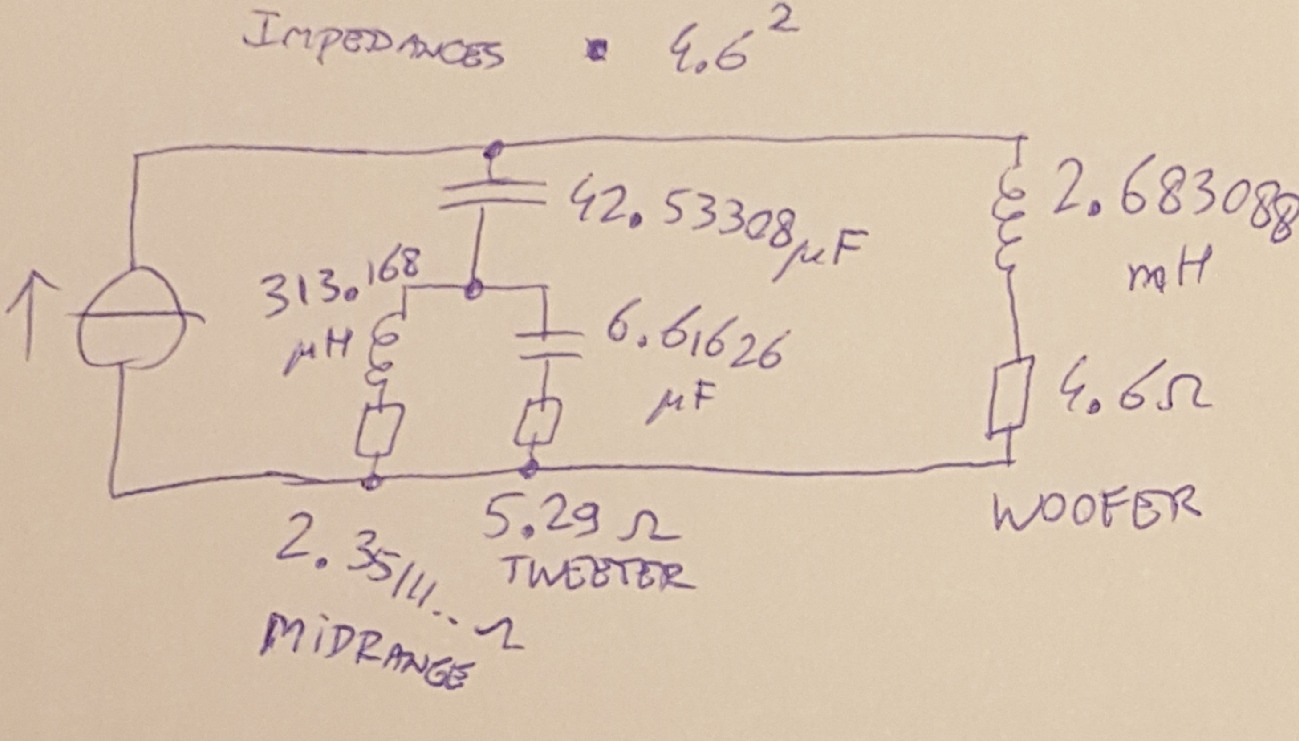 IMPEDANCES • 4.6²
42.53308μF
2.683088
mH
313.168
μH
6.61626
μF
4.6Ω
WOOFER
5.29 Ω
TWEETER
2.35111...Ω
MIDRANGE